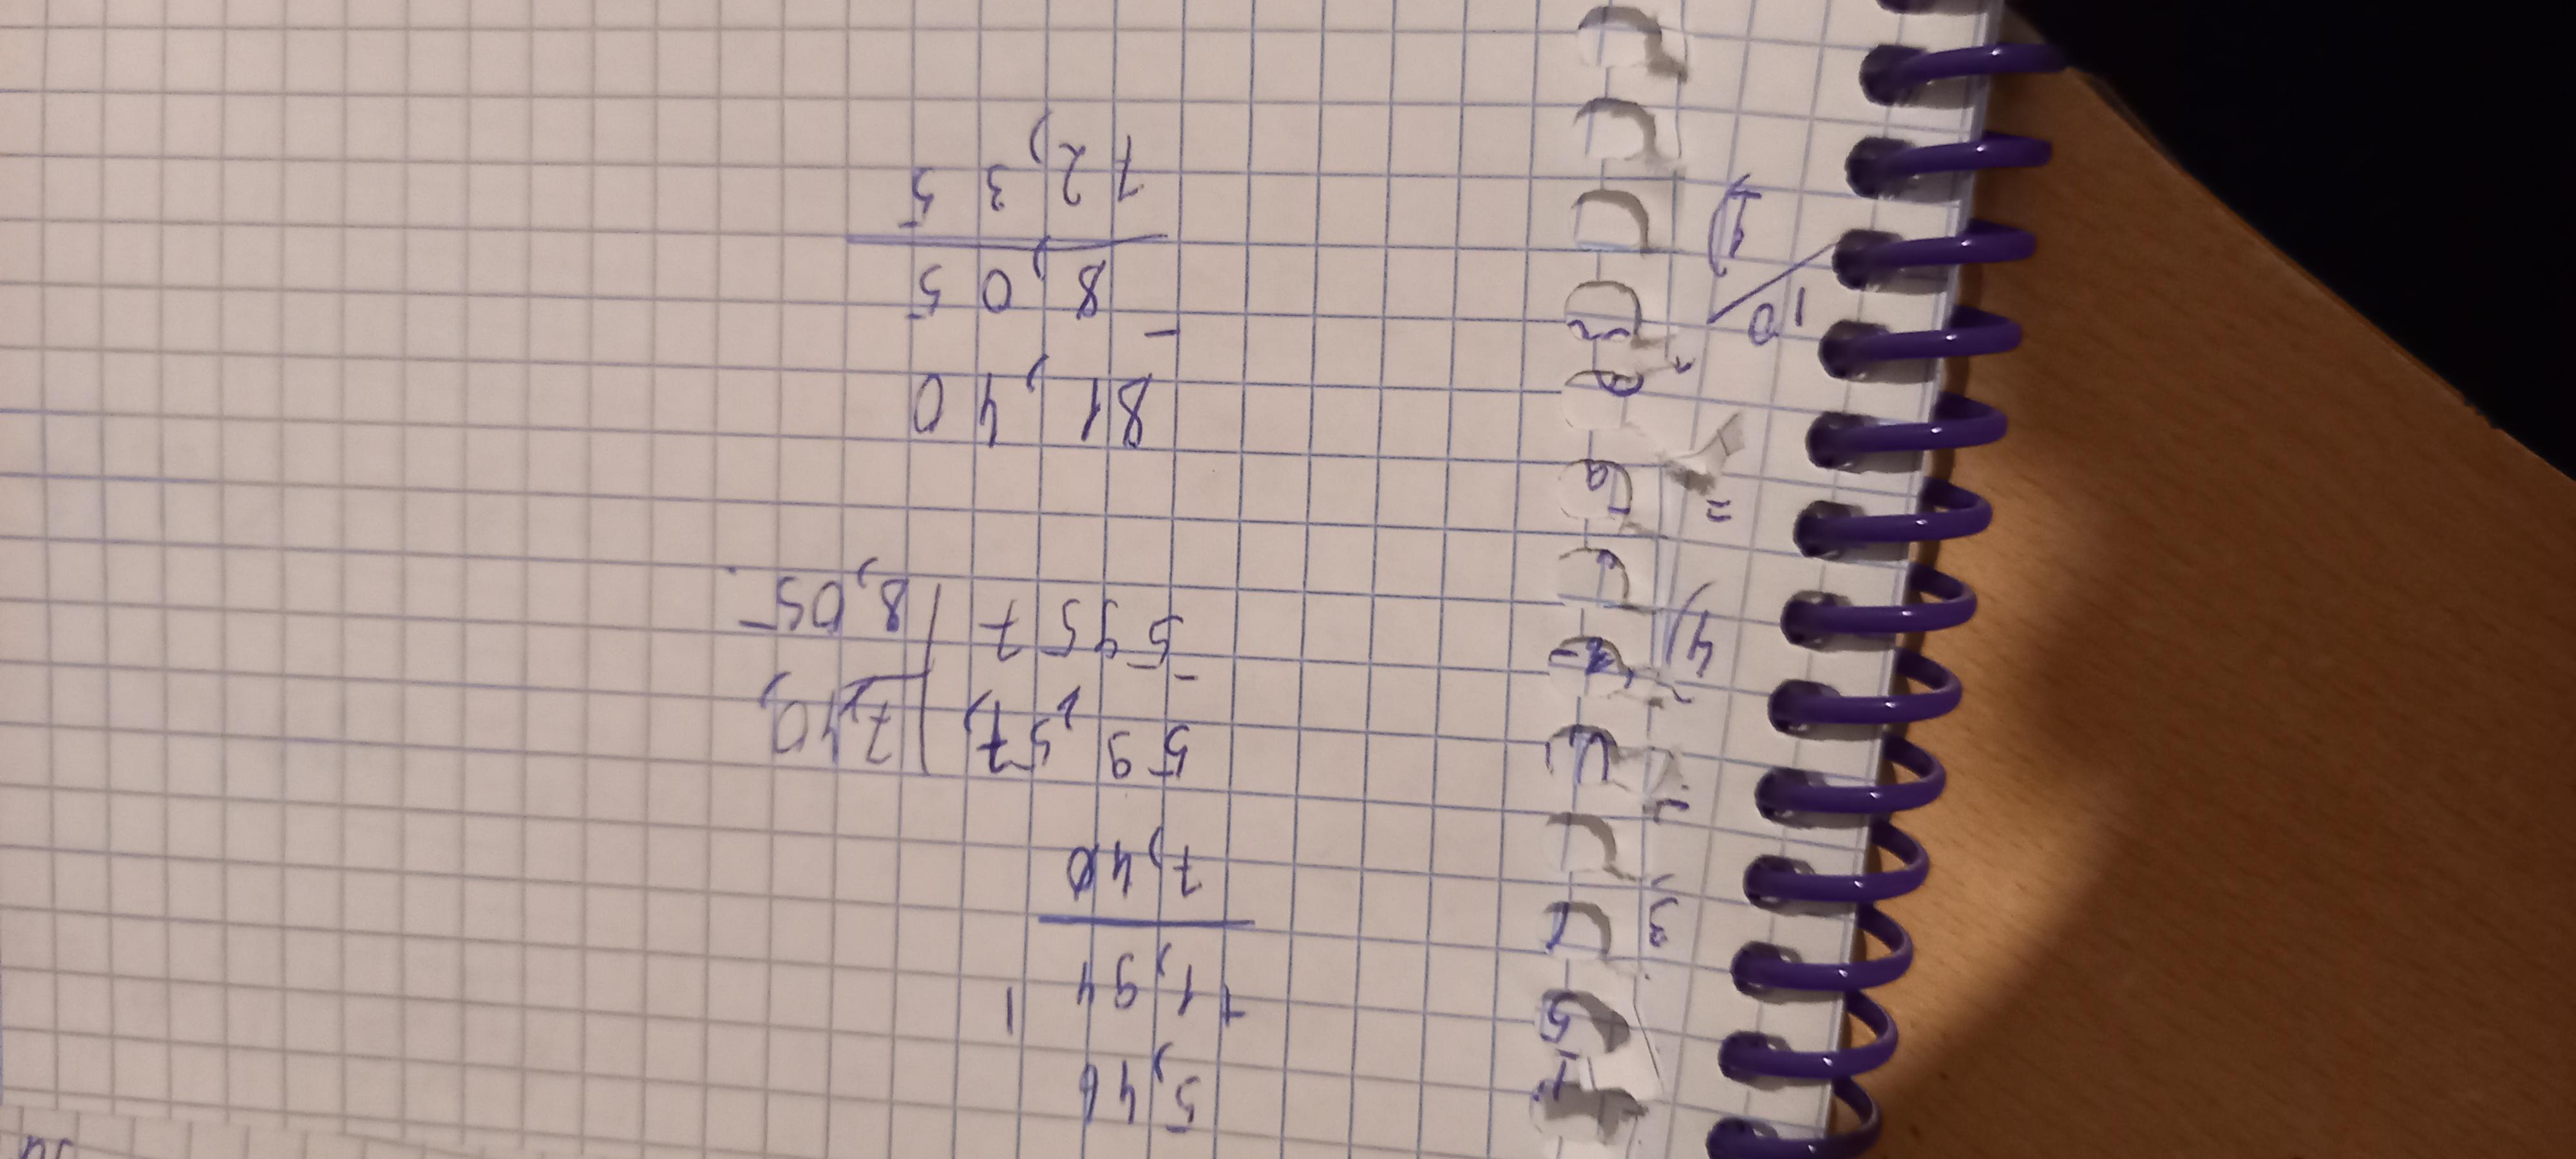 5,46
+ 1,94 1
7,40
59,57, | 7,40,
- 5957 | 8,05
4)
=
81,40
- 8,05
10
72,35